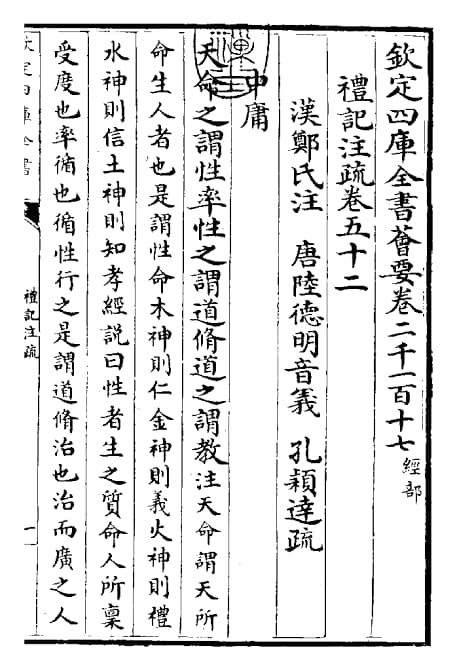 欽定四庫全書薈要卷二千一百十七 經部
禮記注疏卷五十二
漢鄭氏注 唐陸德明音義 孔穎達疏
中庸
天命之謂性率性之謂道脩道之謂教注天命謂天所
命生人者也是謂性命木神則仁金神則義火神則禮
水神則信土神則知孝經說曰性者生之質命人所稟
受度也率循也循性行之是謂道脩治也治而廣之人
欽定四庫全書
禮記注疏
一